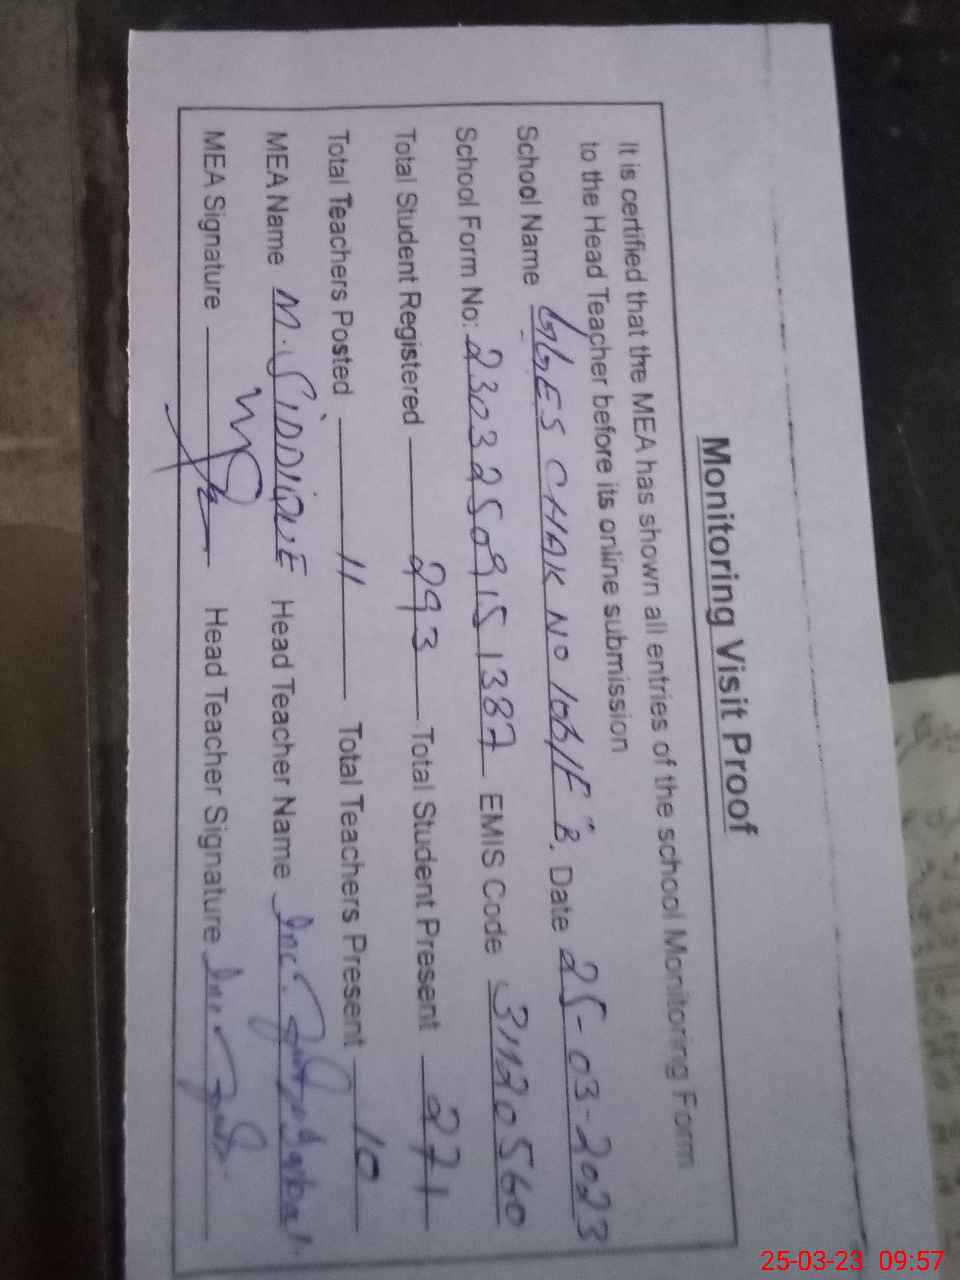 Monitoring Visit Proof
It is certified that the MEA has shown all entries of the school Monitoring Form
to the Head Teacher before its online submission
School Name GGES CHAK NO 108/E"B. Date 25-03-2023
School Form No: 23032509151387 EMIS Code 31120560
Total Student Registered 293 Total Student Present 271
Total Teachers Posted 11 Total Teachers Present 10
MEA Name M. SIDDIQUE Head Teacher Name
MEA Signature Head Teacher Signature
25-03-23 09:57